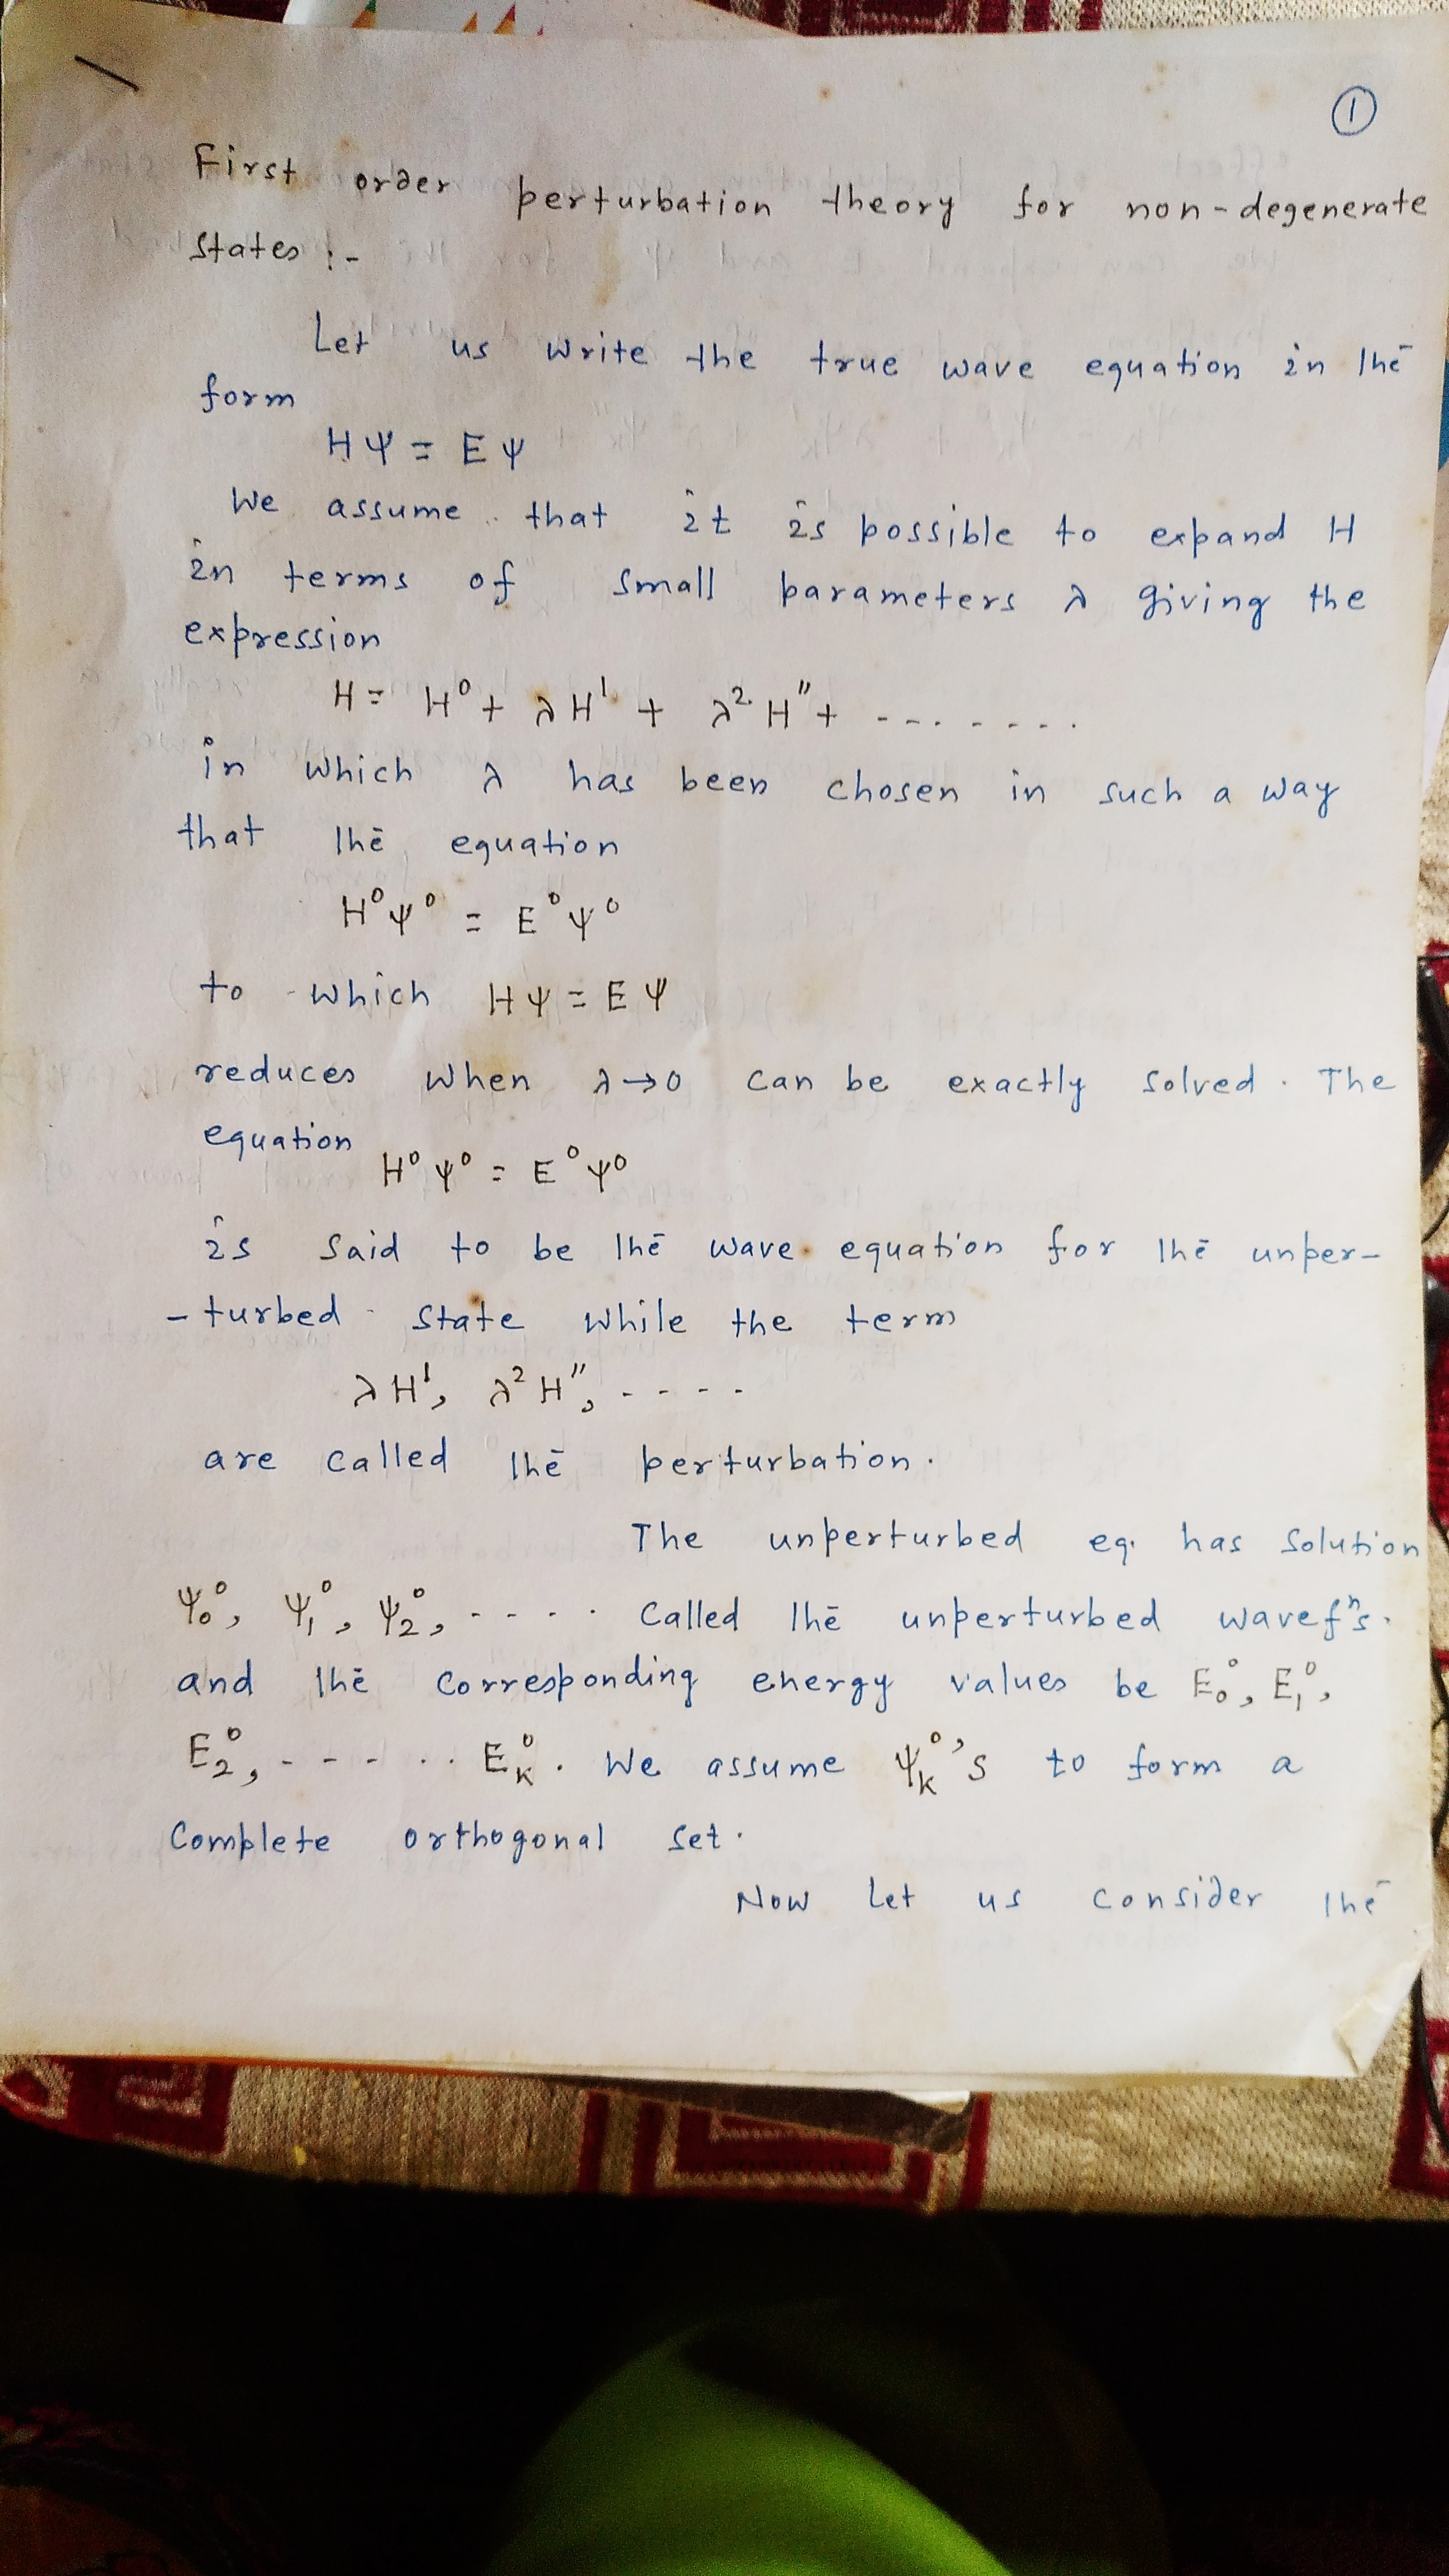 ①
First order perturbation theory for non-degenerate
states :-
Let us write the true wave equation in the
form
HΨ = EΨ
We assume that it is possible to expand H
in terms of small parameters λ giving the
expression
H = H⁰ + λH' + λ²H'' + - - - - - - -
in which λ has been chosen in such a way
that the equation
H⁰Ψ⁰ = E⁰Ψ⁰
to which HΨ = EΨ
reduces when λ→0 can be exactly solved. The
equation
H⁰Ψ⁰ = E⁰Ψ⁰
is said to be the wave equation for the unper-
-turbed state while the term
λH', λ²H'', - - - -
are called the perturbation.
The unperturbed eq. has solution
Ψ₀⁰, Ψ₁⁰, Ψ₂⁰, - - - - . called the unperturbed wavefⁿs.
and the corresponding energy values be E₀⁰, E₁⁰,
E₂⁰, - - - - .. E_K⁰. We assume Ψ_K⁰'s to form a
complete orthogonal set.
Now let us consider the